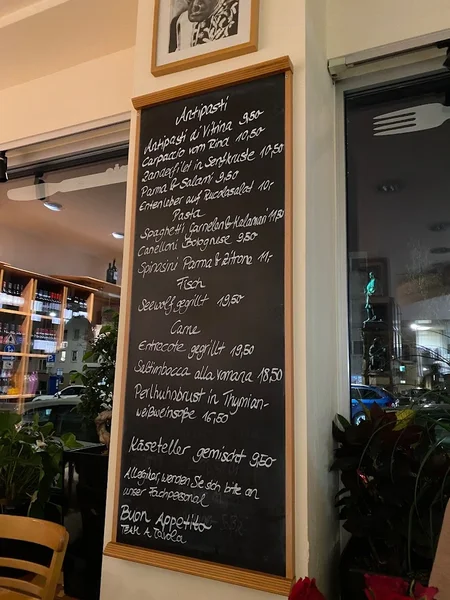 Antipasti
Antipasti di Vitrina 9,50
Carpaccio vom Rind 10,50
Zanderfilet in Senfkruste 10,50
Parma & Salami 9,50
Entenleber auf Rucolasalat 10,-
Pasta
Spaghetti Garnelen & Kalamari 11,50
Canelloni Bolognese 9,50
Spinosini Parma & Zitrone 11,-
Fisch
Seewolf gegrillt 19,50
Carne
Entrecote gegrillt 19,50
Saltimbocca alla romana 18,50
Perlhuhnbrust in Thymian-
weißweinsoße 16,50
Käseteller gemischt 9,50
Allergiker, wenden Sie sich bitte an
unser Fachpersonal
Buon Appetito
TEAM A TAVOLA